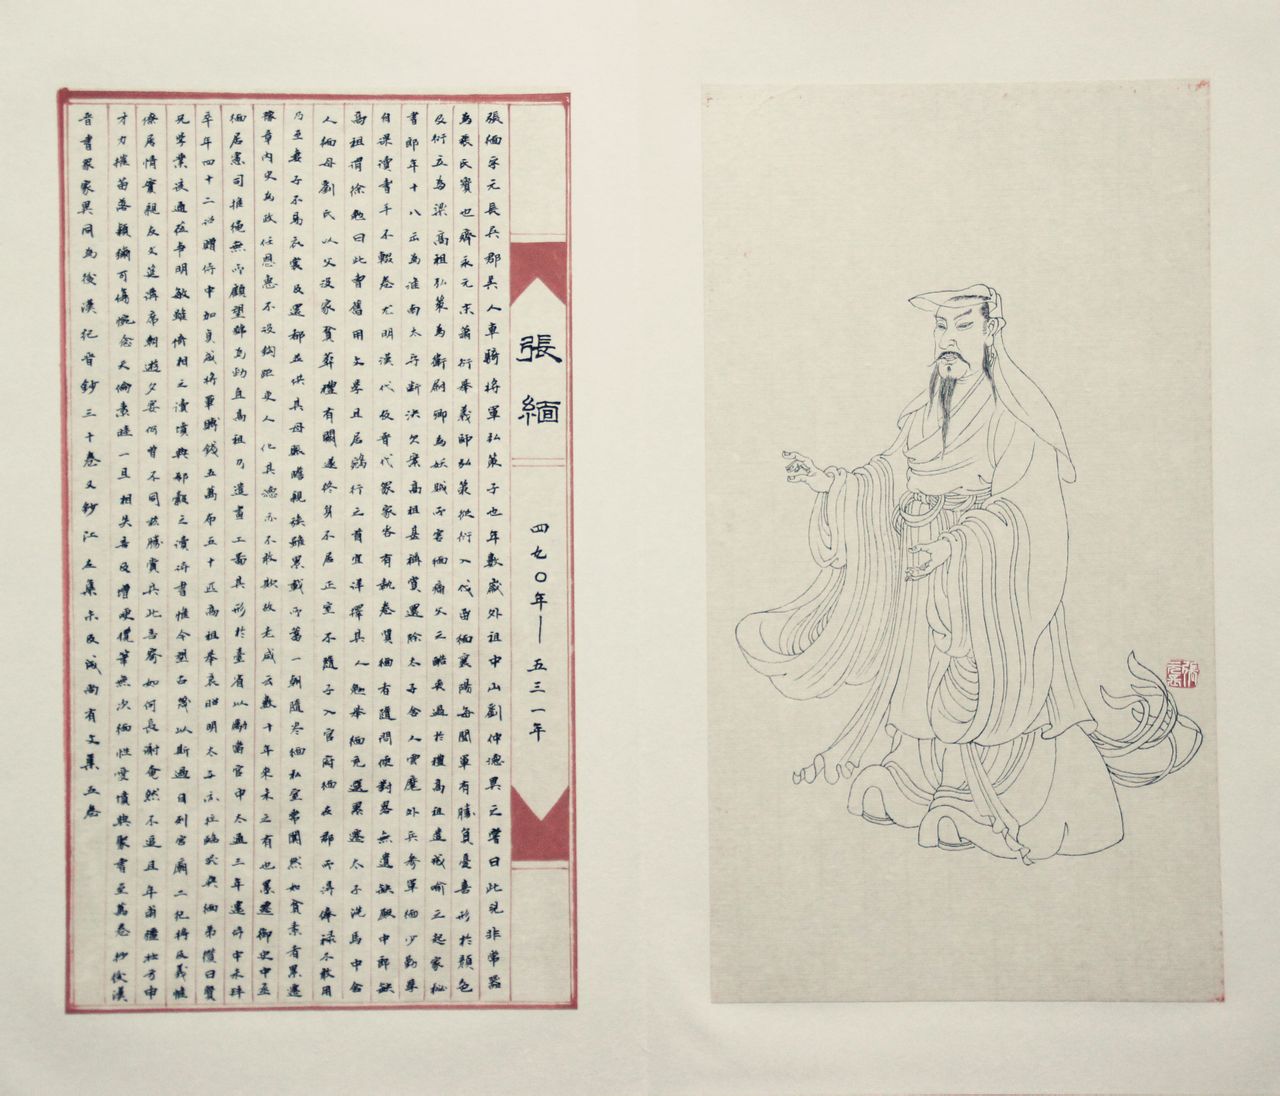 張緬
四九〇年——五三一年
張緬字元長吳郡吳人車騎將軍弘策子也年數歲外祖中山劉仲德異之嘗曰此兒非常器
為張氏寶也齊永元末蕭衍舉義師弘策從衍入伐留緬襄陽每聞軍有勝負憂喜形於顏色
及衍立為梁高祖弘策為衛尉卿為妖賊所害緬痛父之酷喪過於禮高祖遣戒喻之起家秘
書郎年十八出為淮南太守斷決允案高祖甚稱賞還除太子舍人雲麾外兵參軍緬少勤學
自課讀書手不輟卷尤明漢代及晉代眾家客有執卷質緬者隨問便對略無遺缺殿中郎缺
高祖謂徐勉曰此曹舊用文學且居鵷行之首宜詳擇其人勉舉緬充選累遷太子洗馬中舍
人緬母劉氏以父沒家貧葬禮有闕遂終身不居正室不隨子入官府緬在郡所得俸祿不敢用
乃至妻子不易衣裳及還都並供其母賑贍親族雖累載所蓄一朝隨盡緬私室常闃然如貧素者累遷
豫章內史為政任恩惠不設鉤距吏人化其德亦不敢欺故老咸云數十年來未之有也累遷御史中丞
緬居憲司推繩無所顧望號為勁直高祖乃遣畫工圖其形於臺省以勵當官中大通三年遷侍中未拜
卒年四十二詔贈侍中加貞威將軍賻錢五萬布五十匹高祖舉哀昭明太子亦往臨哭與緬弟纘曰賢
兄學業該通莅事明敏雖倚相之讀墳典郤縠之讀詩書惟今望古蔑以斯過自列宮廟二紀將及義惟
僚屬情實親友文筵講席朝遊夕宴何曾不同茲勝賞共此言寄如何長謝奄然不追且年甫禮壯方申
才力摧苗落穎彌可傷惋念天倫素睦一旦相失言及增哽攬筆無次緬性愛墳典聚書至萬卷抄後漢
晉書眾家異同為後漢紀晉鈔三十卷又鈔江左集未及成尚有文集五卷